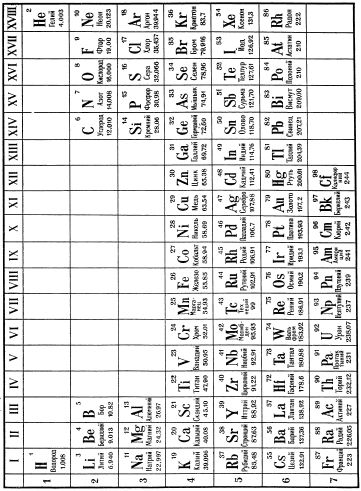 I II III IV V VI VII VIII IX X XI XII XIII XIV XV XVI XVII XVIII
1
1 H Водород 1,008
2 He Гелий 4,003
2
3 Li Литий 6,940
4 Be Бериллий 9,013
5 B Бор 10,82
6 C Углерод 12,010
7 N Азот 14,008
8 O Кислород 16,000
9 F Фтор 19,00
10 Ne Неон 20,183
3
11 Na Натрий 22,997
12 Mg Магний 24,32
13 Al Алюминий 26,97
14 Si Кремний 28,06
15 P Фосфор 30,98
16 S Сера 32,066
17 Cl Хлор 35,457
18 Ar Аргон 39,944
4
19 K Калий 39,096
20 Ca Кальций 40,08
21 Sc Скандий 45,10
22 Ti Титан 47,90
23 V Ванадий 50,95
24 Cr Хром 52,01
25 Mn Марганец 54,93
26 Fe Железо 55,85
27 Co Кобальт 58,94
28 Ni Никель 58,69
29 Cu Медь 63,54
30 Zn Цинк 65,38
31 Ga Галлий 69,72
32 Ge Германий 72,60
33 As Мышьяк 74,91
34 Se Селен 78,96
35 Br Бром 79,916
36 Kr Криптон 83,7
5
37 Rb Рубидий 85,48
38 Sr Стронций 87,63
39 Y Иттрий 88,92
40 Zr Цирконий 91,22
41 Nb Ниобий 92,91
42 Mo Молибден 95,95
43 Tc Технеций 99
44 Ru Рутений
45 Rh Родий
46 Pd Палладий 106,7
47 Ag Серебро 107,88
48 Cd Кадмий 112,41
49 In Индий 114,76
50 Sn Олово 118,70
51 Sb Сурьма 121,76
52 Te Теллур 127,61
53 I Иод 126,92
54 Xe Ксенон 131,3
6
55 Cs Цезий 132,91
56 Ba Барий 137,36
57 La Лантан 138,92
72 Hf Гафний 178,6
73 Ta Тантал 180,88
74 W Вольфрам 183,92
75 Re Рений
76 Os Осмий 190,2
77 Ir Иридий 193,1
78 Pt Платина
79 Au Золото 197,2
80 Hg Ртуть 200,61
81 Tl Таллий 204,39
82 Pb Свинец 207,21
83 Bi Висмут 209,00
84 Po Полоний 210
85 At Астатин 210
86 Rn Радон 222
7
87 Fr Франций 223
88 Ra Радий 226,05
89 Ac Актиний 227
90 Th Торий 232,12
91 Pa Протактиний 231
92 U Уран 238,07
93 Np Нептуний 237
94 Pu Плутоний 239
95 Am Америций
96 Cm Кюрий 242
97 Bk Берклий 243
98 Cf Калифорний 244